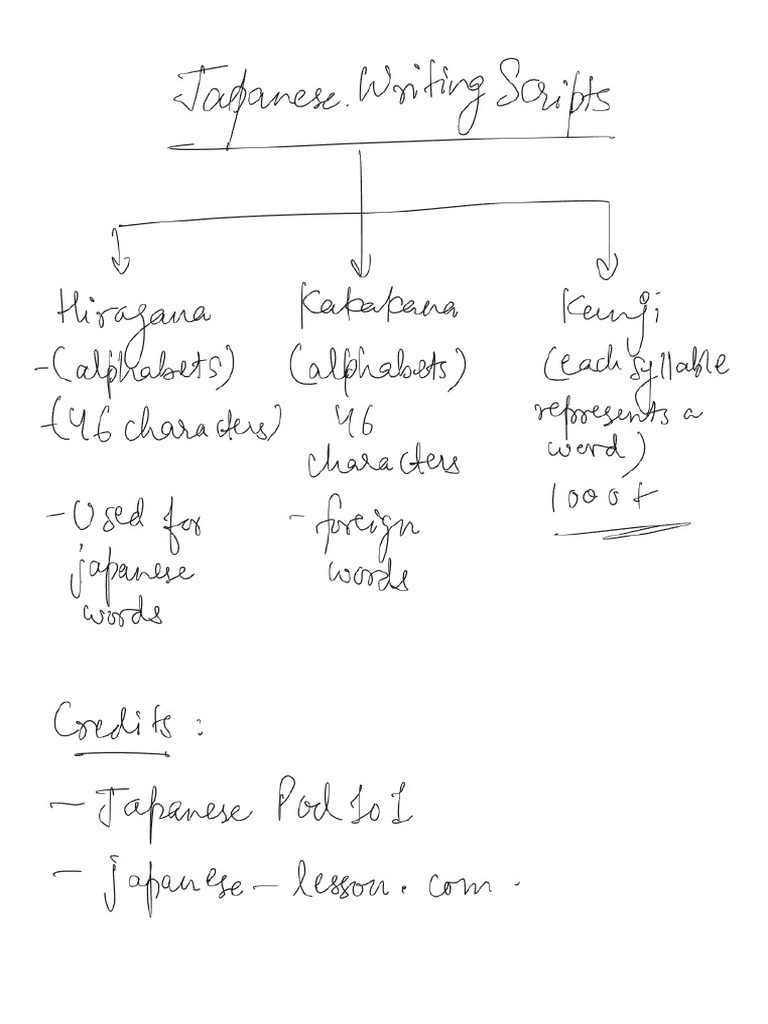 Japanese Writing Scripts
Hiragana
-(alphabets)
-(46 characters)
- Used for
japanese
words
Katakana
(alphabets)
46
characters
- foreign
words
Kanji
(each syllable
represents a
word)
1000+
Credits :
- Japanese Pod 101
- japanese - lesson . com .